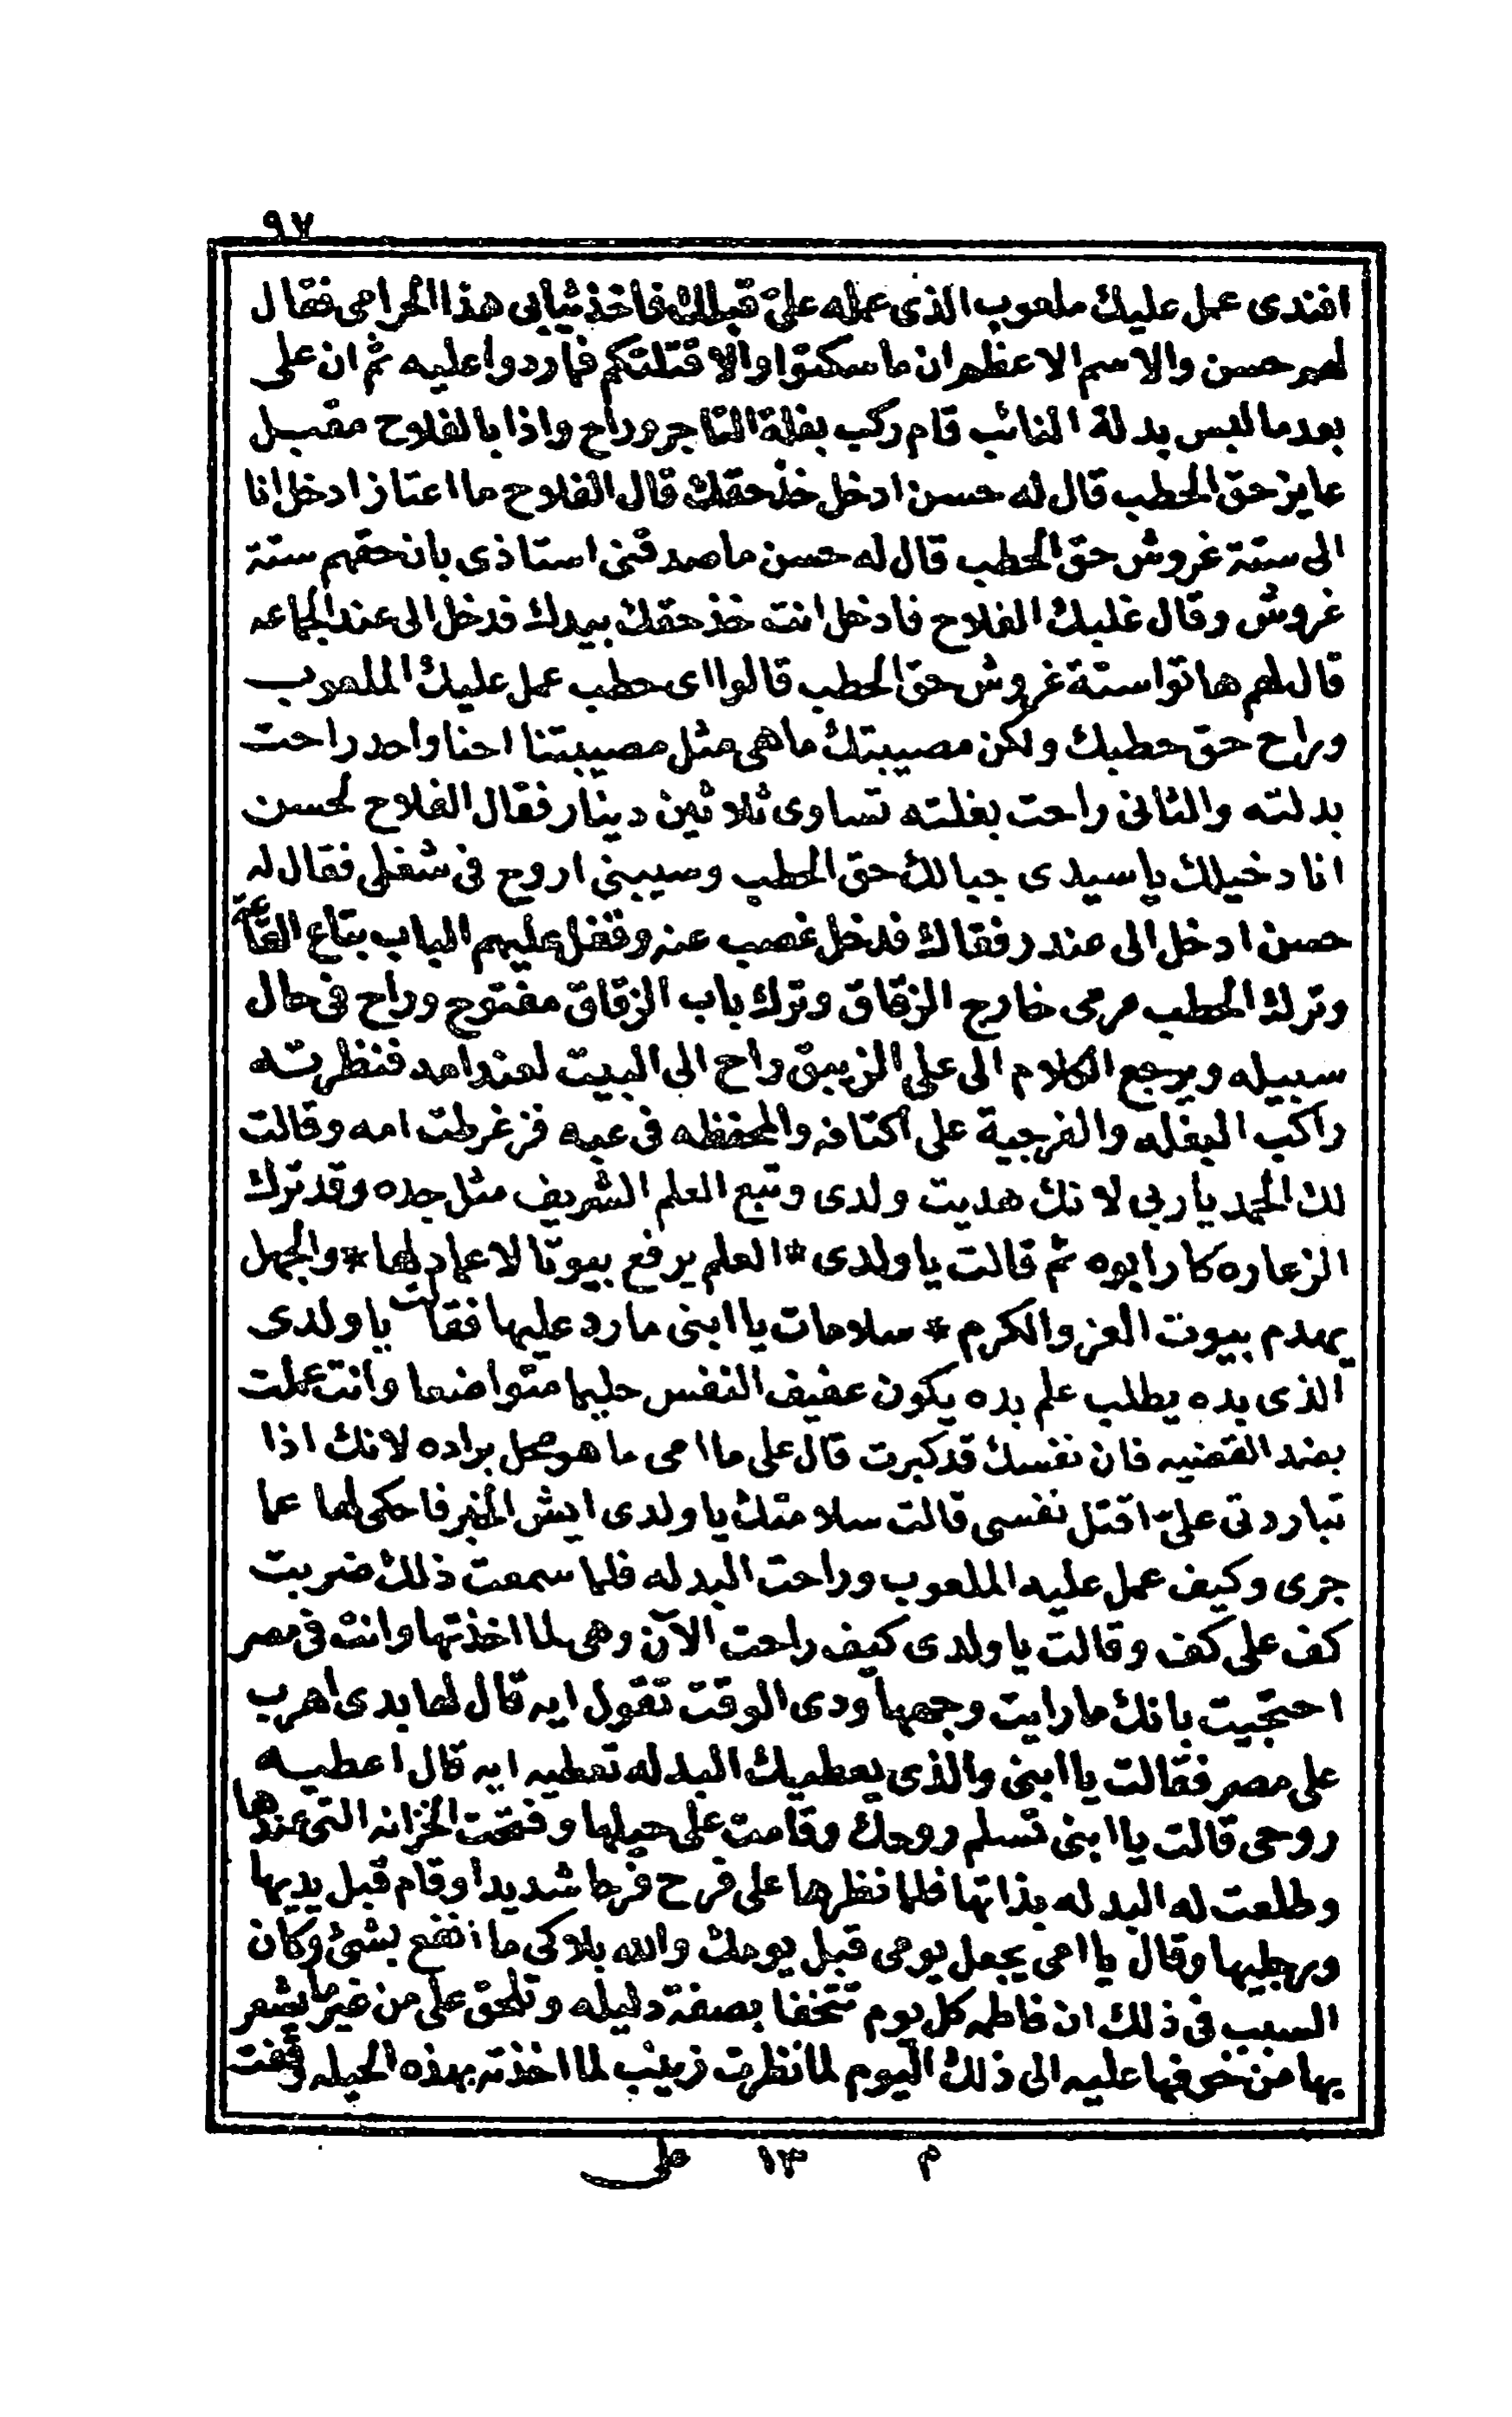 ٩٧
افندى عمل عليك ملعوب الذى عمله علىّ قبلك فاخذ ثيابى هذا الحرامى فقال
لهم حسن والاسم الاعظم ان ما سكتوا والا قتلتكم فما ردوا عليه ثم ان على
بعد ما لبس بدلة النائب قام ركب بغلة التاجر وراح واذا بالفلاح مقبل
عايز حق الحطب قال له حسن ادخل خذ حقك قال الفلاح ما اعتاز ادخل انا
الى ستة غروش حق الحطب قال له حسن ما صدقنى استاذى بان حقهم ستة
غروش وقال غلبك الفلاح فادخل انت خذ حقك بيدك فدخل الى عند الجماعه
قال لهم هاتوا ستة غروش حق الحطب قالوا اى حطب عمل عليك الملعوب
وراح حق حطبك ولكن مصيبتك ما هى مثل مصيبتنا احنا واحد راحت
بدلته والثانى راحت بغلته تساوى ثلاثين دينار فقال الفلاح لحسن
انا دخيلك يا سيدى جبا لك حق الحطب وسيبنى اروح فى شغلى فقال له
حسن ادخل الى عند رفقاك فدخل غصب عنه وقفل عليهم الباب بتاع القاعة
وترك الحطب مرمى خارج الزقاق وترك باب الزقاق مفتوح وراح فى حال
سبيله ويرجع الكلام الى على الزيبق راح الى البيت لعند امه فنظرته
راكب البغله والفرجية على اكتافه والمحفظه فى عبه فزغرطت امه وقالت
لك الحمد يا ربى لانك هديت ولدى وتبع العلم الشريف مثل جده وقد ترك
الزعاره كار ابوه ثم قالت يا ولدى * العلم يرفع بيوتا لا عماد لها * والجهل
يهدم بيوت العز والكرم * سلامات يا ابنى ما رد عليها فقالت يا ولدى
الذى بده يطلب علم بده يكون عفيف النفس حليما متواضعا وانت عملت
بضد القضيه فان نفسك قد كبرت قال على ما امى ما هو محل براده لانك اذا
تباردتى علىّ اقتل نفسى قالت سلامتك يا ولدى ايش الخبر فاحكى لها عما
جرى وكيف عمل عليه الملعوب وراحت البدله فلما سمعت ذلك ضربت
كف على كف وقالت يا ولدى كيف راحت الآن وهى لما اخذتها وانت فى مصر
احتجيت بانك ما رايت وجهها ودى الوقت تقول ايه قال لها بدى اهرب
على مصر فقالت يا ابنى والذى يعطيك البدله تعطيه ايه قال اعطيه
روحى قالت يا ابنى تسلم روحك وقامت على حيلها وفتحت الخزانه التى عندها
وطلعت له البدله بذاتها فلما نظرها على فرح فرحا شديدا وقام قبل يديها
ورجليها وقال يا امى يجعل يومى قبل يومك والله بلاكى ما انفع بشئ وكان
السبب فى ذلك ان فاطمه كل يوم تتخفا بصفة دليله وتلحق على من غير ما يشعر
بها من خوفها عليه الى ذلك اليوم لما نظرت زينب لما اخذته بهذه الحيله وقفت
م ١٣ على